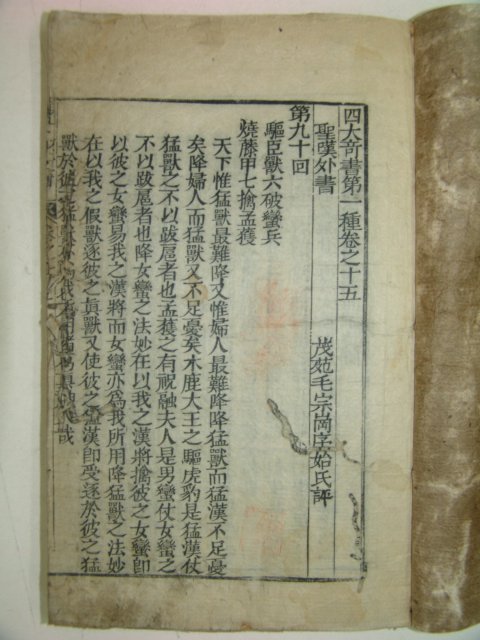 四大奇書第一種卷之十五
聖嘆外書
茂苑毛宗崗序始氏評
第九十回
驅巨獸六破蠻兵
燒藤甲七擒孟獲
天下惟猛獸最難降又惟婦人最難降降猛獸而猛漢不足憂
矣降婦人而猛獸又不足憂矣木鹿大王之驅虎豹是猛漢仗
猛獸之不以跋扈者也孟獲之有祝融夫人是男蠻仗女蠻之
不以跋扈者也降女蠻之法妙在以我之漢將擒彼之女蠻卽
以彼之女蠻易我之漢將而女蠻亦爲我所用降猛獸之法妙
在以我之假獸逐彼之眞獸又使彼之猛漢卽受逐於彼之猛
獸於彼之猛獸